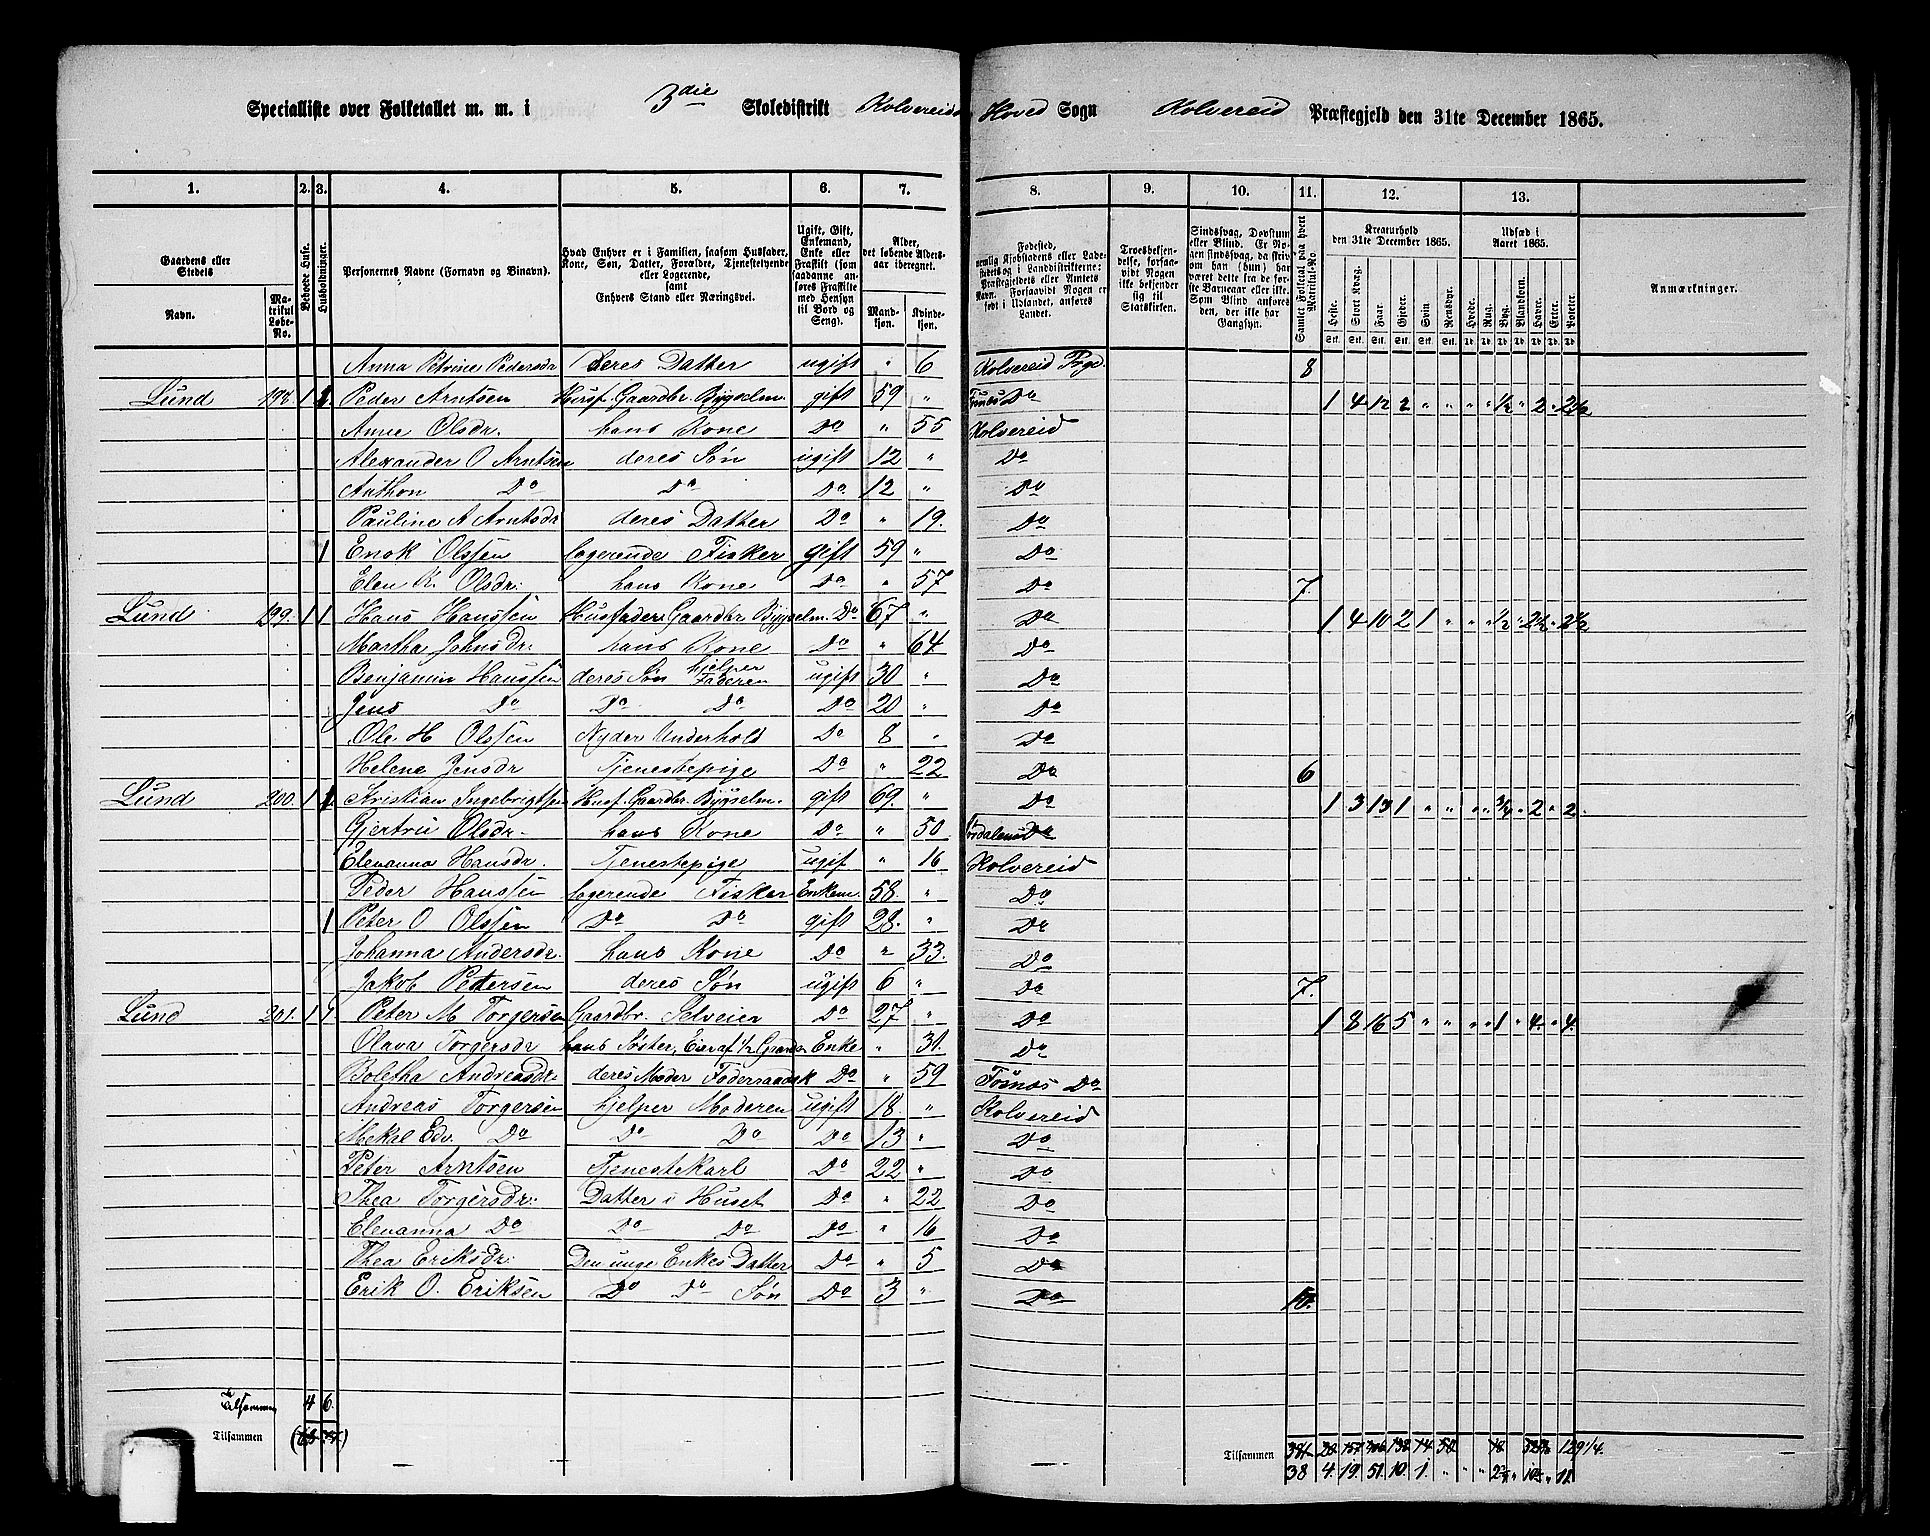 Specialliste over Folketallet m. m. i 3die Skoledistrikt Kolvereids Hoved Sogn Kolvereid Præstegjeld den 31te December 1865.
1. 2. 3. 4. 5. 6. 7. 8. 9. 10. 11. 12. 13.
Gaardens eller Stedets
Navn.
Matrikul Løbe-No.
Beboede Huse.
Husholdninger.
Personernes Navne (Fornavn og Binavn).
Hvad Enhver er i Familien, saasom Husfader, Kone, Søn, Datter, Forældre, Tjenestetyende eller Logerende, samt Enhvers Stand eller Næringsvei.
Ugift, Gift, Enkemand, Enke eller Fraskilt (som saadanne anføres Fraskilte med Hensyn til Bord og Seng).
Alder, det løbende Aldersaar iberegnet.
Mandkjøn. Kvindekjøn.
Troesbekjendelse, forsaavidt Nogen ikke bekjender sig til Statskirken.
Sindssvag, Døvstum eller Blind.
Samlet Folketal paa hvert Matrikul-No.
Kreaturhold den 31te December 1865.
Heste. Stort Kvæg. Faar. Gjeder. Svin. Rensdyr.
Udsæd i Aaret 1865.
Hvede. Rug. Byg. Blandkorn. Havre. Erter. Poteter.
Anmærkninger.
Anna Petrine Pedersdr deres Datter ugift " 6 Kolvereid Prgd. 8
Lund 198. 1 1 Peder Arntsen Husf. Gaardbr. Bygselm. gift 59 " Do 1 4 12 2 " " " " 1/2 " 2 " 2 1/2
Anne Olsdr. hans Kone Do " 55 Kolvereid
Alexander O Arntsen deres Søn ugift 12 " Do
Anthon Do Do Do 12 " Do
Pauline A Arntsdr deres Datter Do " 19. Do
1 Enok Olssen logerende Fisker gift 59 " Do
Elen K. Olsdr. hans Kone Do " 57 Do 7.
Lund 199. 1 1 Hans Hanssen Husfader Gaardbr Bygselm. Do 67 " Do 1 4 10 2 1 " " " 1/2 " 2 1/2 " 2 1/2
Martha Johnsdr. hans Kone Do " 64 Do
Benjamin Hanssen deres Søn hjelper Faderen ugift 30 " Do
Jens Do Do Do Do 20 " Do
Ole H Olssen Nyder Underhold Do 8 " Do
Helene Jensdr Tjenestepige Do " 22 Do 6
Lund 200. 1 1 Kristian Ingebrigtsen Husf. Gaardbr. Bygselm. gift 69 " Do 1 3 13 1 " " " " 3/4 " 2 " 2.
Gjertru Olsdr. hans Kone Do " 50. Do
Elevanna Hansdr. Tjenestepige ugif " 16 Kolvereid
Peder Hanssen logerende Fisker Enkem. 58. " Do
1 Peter O Olssen Do Do gift 28. " Do
Johanna Andersdr. hans Kone Do " 33. Do
Jakob Petersen deres Søn ugift 6 " Do 7.
Lund 201. 1 1 Peter M Torgersen Gaardbr. Selveier Do 27 " Do 1 8 16 5 " " " " 1 " 4. " 4.
Olava Torgersdr hans Søster, Eier af 1/2 Gaarden Enke " 30. Do
Boletha Andreasdr. deres Moder Føderaadsk Do " 59 Fosnæs Do
Andreas Torgersen hjelper Moderen ugift 18. " Kolvereid
Mekal Edv. Do Do Do Do 13 " Do
Peter Arntsen Tjenestekarl Do 22 " Do
Thea Torgersdr. Datter i Huset Do " 22 Do
Elevanna Do Do Do Do " 16 Do
Thea Eriksdr. Den unge Enkes Datter Do " 5 Do
Erik O. Eriksen Do Do Søn Do 3 " Do 10.
Tilsammen 4 6.
Tilsammen
Tilsammen
38 4. 19. 51. 10. 1. " " " " 11.